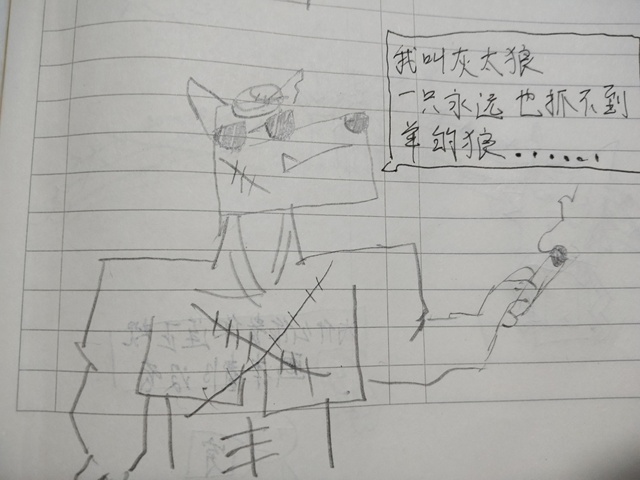 我叫灰太狼
一只永远也抓不到
羊的狼......